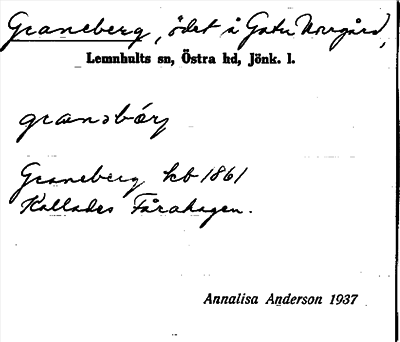 Graneberg, ödet å Gatu Norrgård,
Lemnhults sn, Östra hd, Jönk. l.
granəbærj
Graneberg kb 1861
Kallades Fårahagen.
Annalisa Anderson 1937